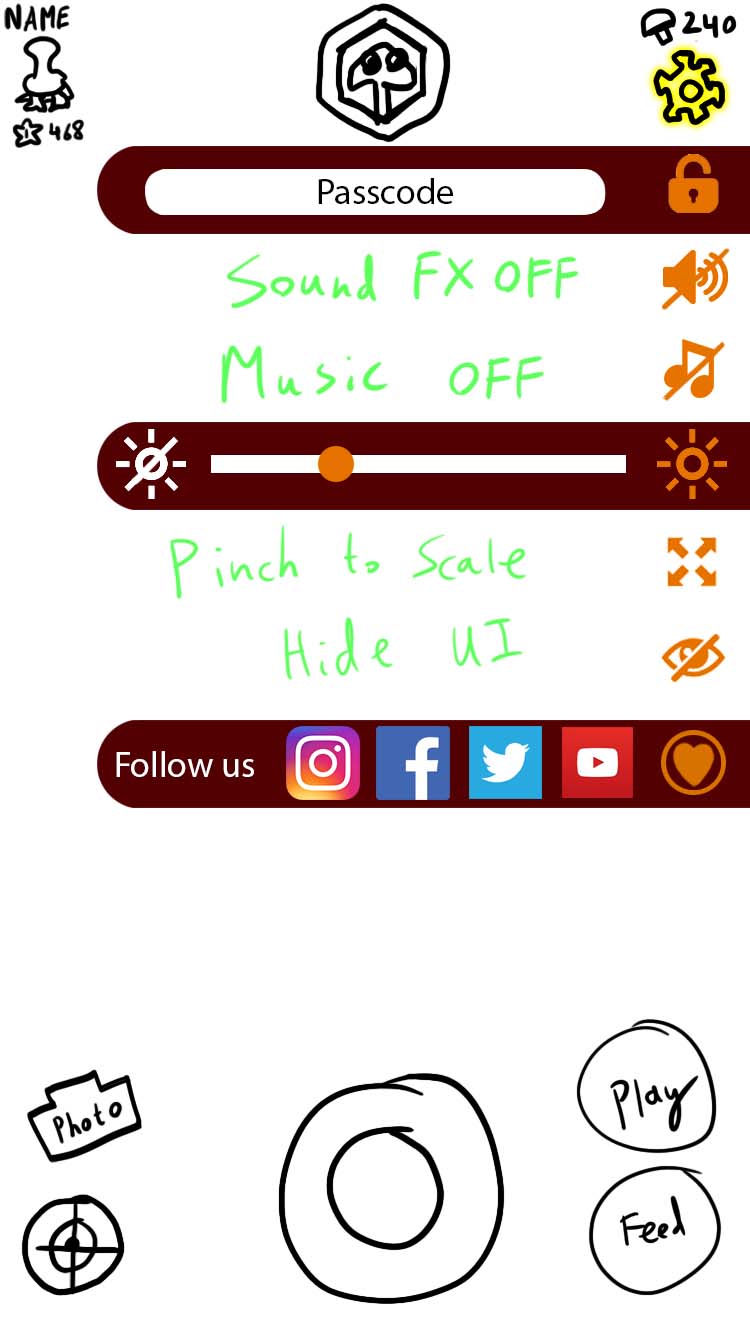 NAME
240
468
Passcode
Sound FX OFF
Music OFF
Pinch to Scale
Hide UI
Follow us
Photo
Play
Feed